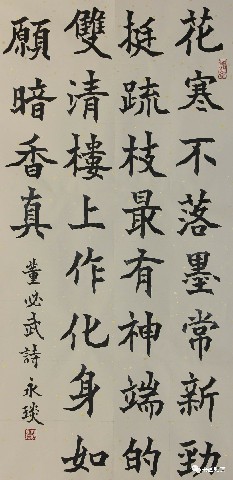 花寒不落墨常新勁
挺疏枝最有神端的
雙清樓上作化身如
願暗香真
董必武詩永琰